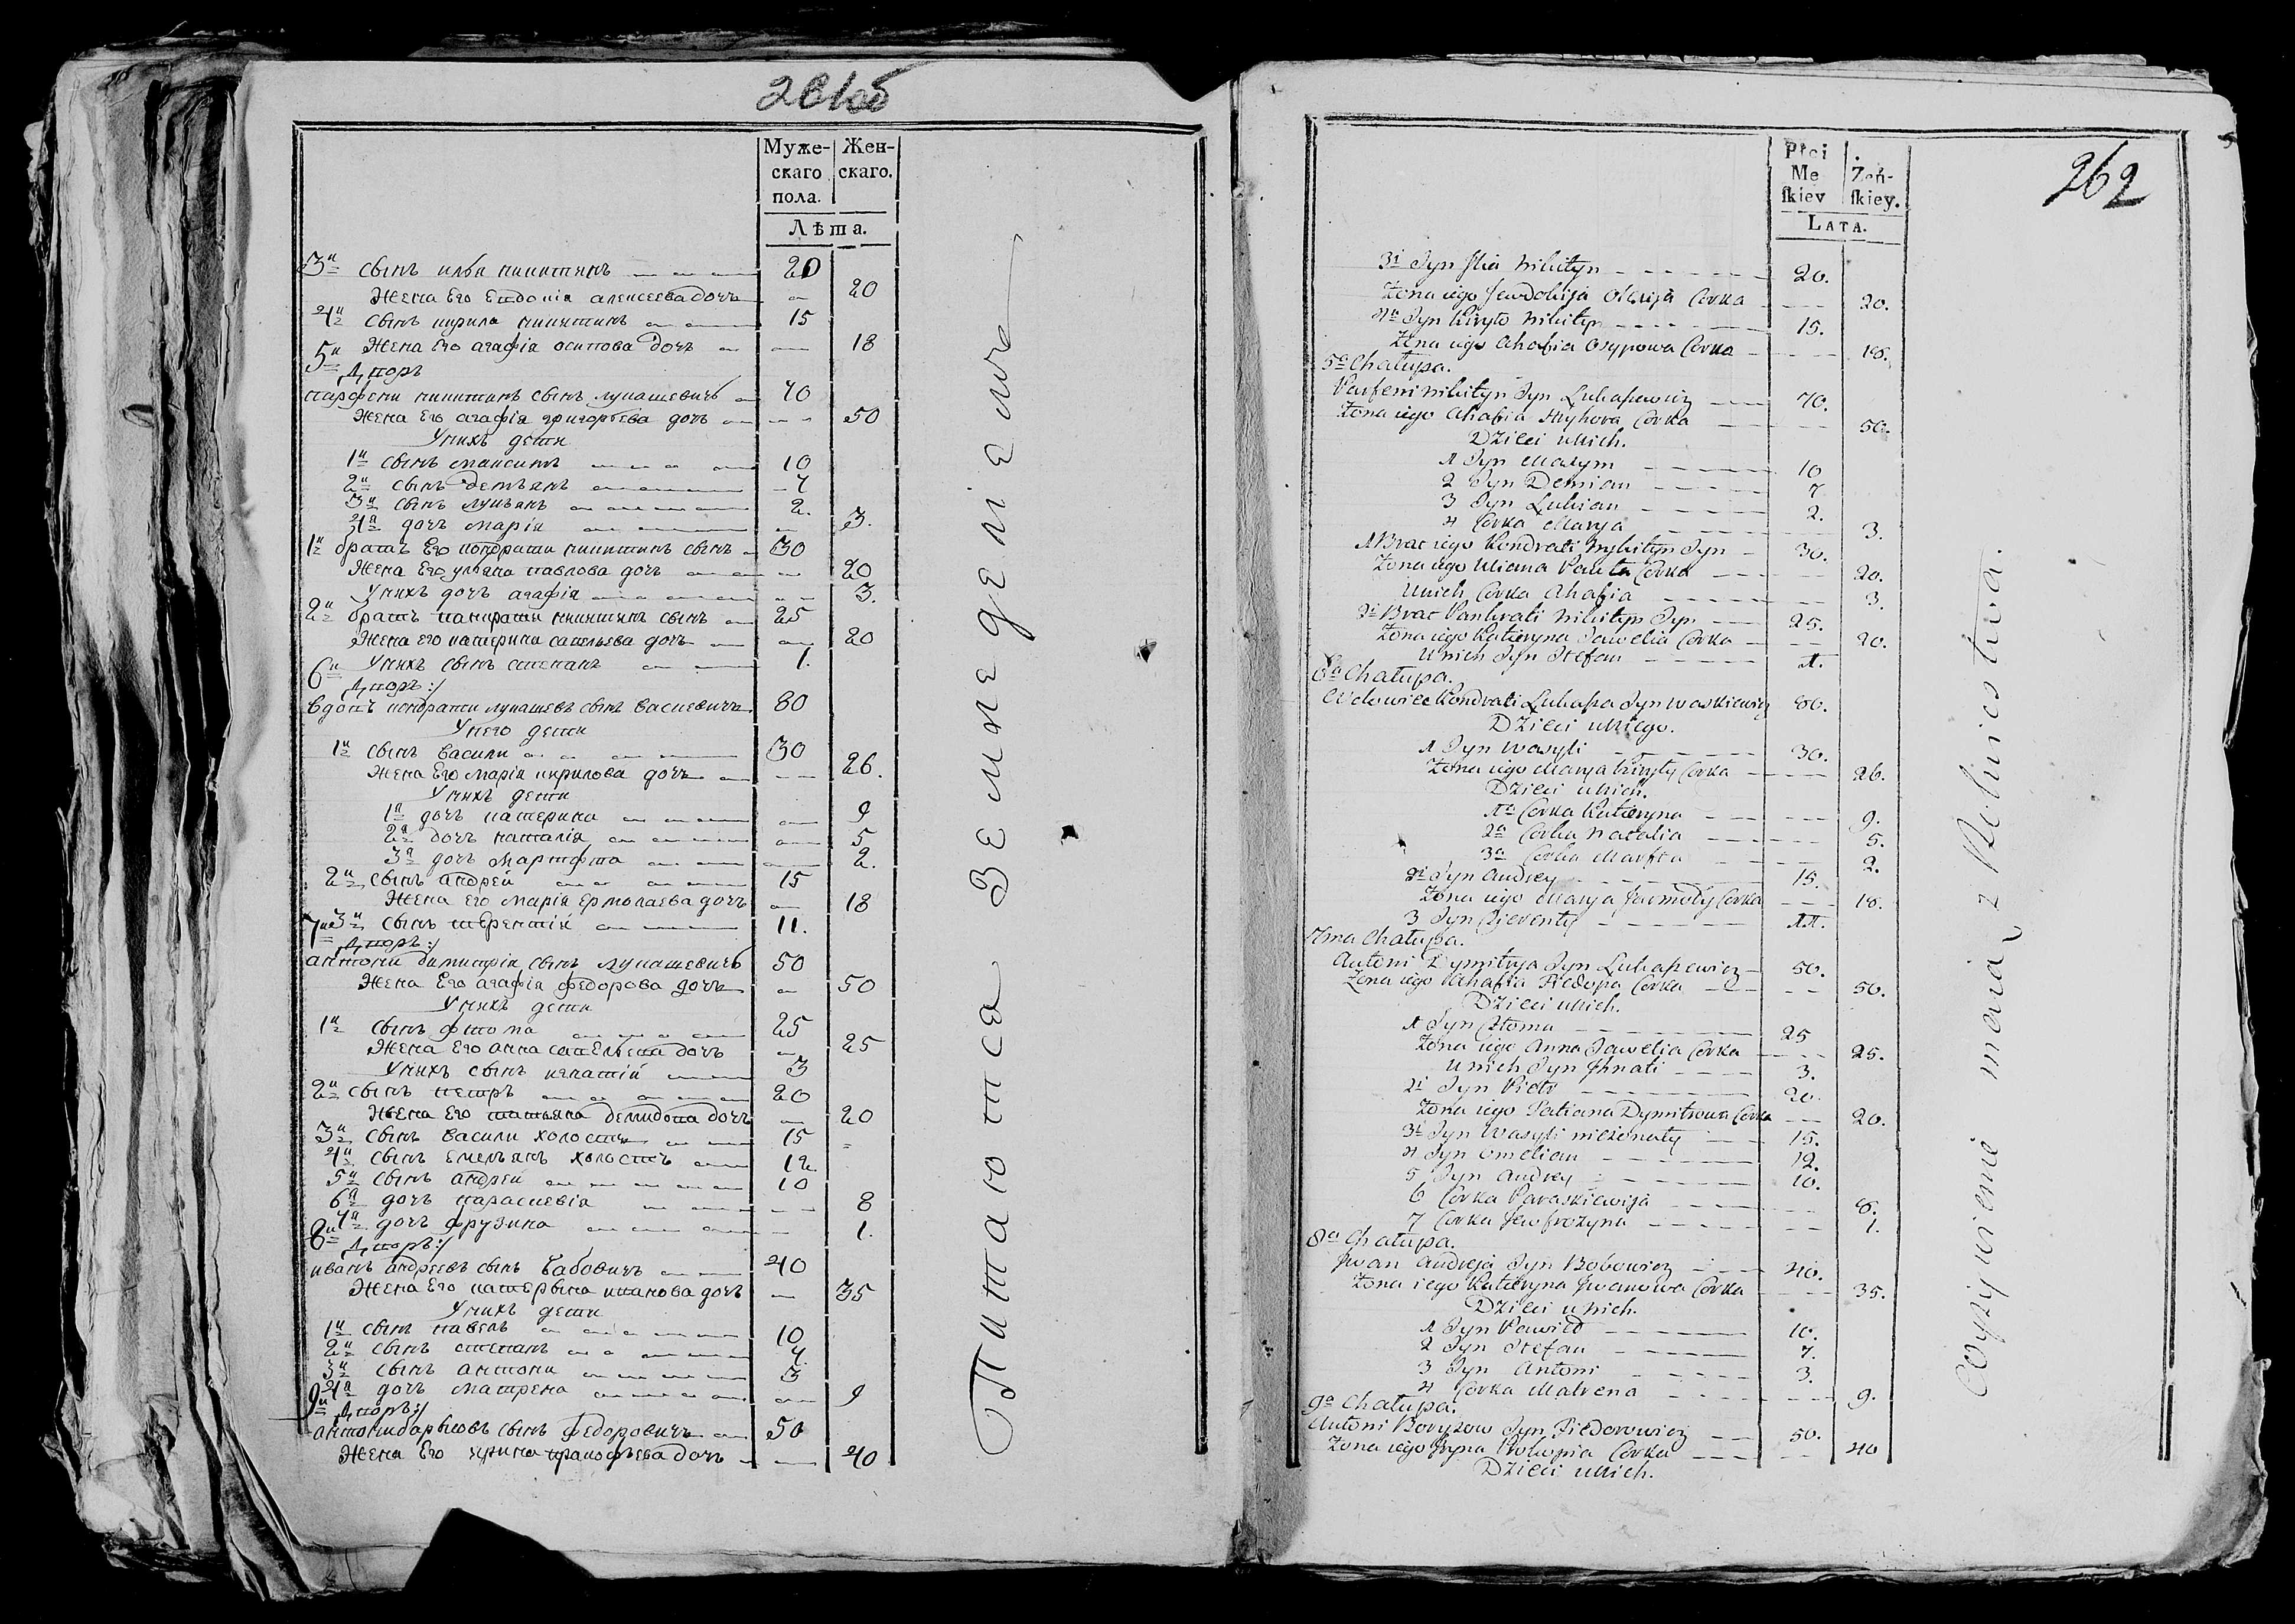 261об
Муже-
скаго
пола.
Жен-
скаго.
Лѣта.
3й сынъ илья никитинъ 20
Жена Его Евдокия алексеева дочь 20
4й сынъ кирила никитинъ 15
Жена Его агафія осипова дочь 18
5й Дворъ
парфени никитинъ сынъ лукашевичъ 70
Жена Его агафія григорьева дочь 50
Унихъ дети
1й сынъ максимъ 10
2й сынъ демьянъ 7
3й сынъ лукьянъ 2.
4я дочь марія 3.
1й братъ Его кондрати никитинъ сынъ 30
Жена Его ульяна павлова дочь 20
Унихъ дочь агафія 3.
2й братъ панкрати никитинъ сынъ 25
Жена Его катерина савельева дочь 20
Унихъ сынъ степанъ 1.
6й Дворъ:/
вдовъ кондрати лукашевъ сынъ васкевичъ 80
Унего дети
1й сынъ васили 30
Жена Его марія кирилова дочь 26.
Унихъ дети
1я дочь катерина 9
2я дочь наталія 5
3я дочь марфта 2.
2й сынъ андрей 15
Жена Его марія ермолаева дочь 18
3й сынъ терентій 11.
7й Дворъ:/
антони димитрія сынъ лукашевичъ 50
Жена Его агафія федорова дочь 50
Унихъ дети
1й сынъ фтома 25
Жена Его анна савельева дочь 25
Унихъ сынъ игнатій 3
2й сынъ петръ 20
Жена Его татьяна демидова дочь 20
3й сынъ васили холостъ 15
4й сынъ емельянъ холостъ 12
5й сынъ андреи 10
6я дочь параскевія 8
7я дочь фрузина 1.
8й Дворъ:/
иванъ андреевъ сынъ бабовичъ 40
Жена Его катерына иванова дочь 35
Унихъ дети
1й сынъ павелъ 10
2й сынъ степанъ 7.
3й сынъ антони 3
4я дочь матрена 9
9й Дворъ:/
антони барысовъ сынъ федоровичъ 50
Жена Его ирина пракофьева дочь 40
Питаются Земледелiемъ
262
Płci
Mę
skiey
Żeń-
skiey.
LATA.
3i Syn Ilia Nikityn 20.
Żona iego Jewdokija Olexija Corka 20.
4a Syn Kiryło Nikityn 15.
Żona iego Ahafia Osypowa Corka 18.
5a Chałupa.
Parfeni Nikityn Syn Lukaszewicz 70.
Żona iego Ahafia Hryhora Corka 50.
Dzieci unich.
1 Syn Maxym 10
2 Syn Demian 7
3 Syn Lukian 2.
4 Corka Marya 3.
1 Brat iego Kondrati Nykityn Syn 30.
Żona iego Uliana Pawła Corka 20.
Unich Corka Ahafia 3.
2i Brat Pankrati Nikityn Syn 25.
Żona iego Kateryna Sawelia Corka 20.
Unich Syn Stefan 1.
6a Chałupa.
Wdowiec Kondrati Lukasza Syn Waskiewicz 80.
Dzieci uniego.
1 Syn Wasyli 30.
Żona iego Marya Kiryły Corka 26.
Dzieci unich.
1a Corka Kateryna 9.
2a Corka Natalia 5.
3a Corka Marfta 2.
2i Syn Andrey 15.
Żona iego Marya Jarmoły Corka 18.
3 Syn Cierenty 11.
7ma Chałupa.
Antoni Dymitrya Syn Lukaszewicz 50.
Żona iego Ahafia Fiedora Corka 50.
Dzieci unich.
1 Syn Chtoma 25
Żona iego Anna Sawelia Corka 25.
Unich Syn Ihnati 3.
2i Syn Piotr 20.
Żona iego Tatiana Dymitrowa Corka 20.
3i Syn Wasyli nieżonaty 15.
4 Syn Omelian 12.
5 Syn Andrey 10.
6 Corka Paraskiewija 8.
7 Corka Jewfrozyna 1.
8a Chałupa.
Jwan Andreja Syn Bobowicz 40.
Żona iego Kateryna Jwanowa Corka 35.
Dzieci unich.
1 Syn Paweł 10.
2 Syn Stefan 7.
3 Syn Antoni 3.
4 Corka Matrena 9.
9a Chałupa.
Antoni Boryzow Syn Fiedorowicz 50.
Żona iego Jryna Prokopia Corka 40
Dzieci unich.
Wyżywienie maią z Rolnictwa.